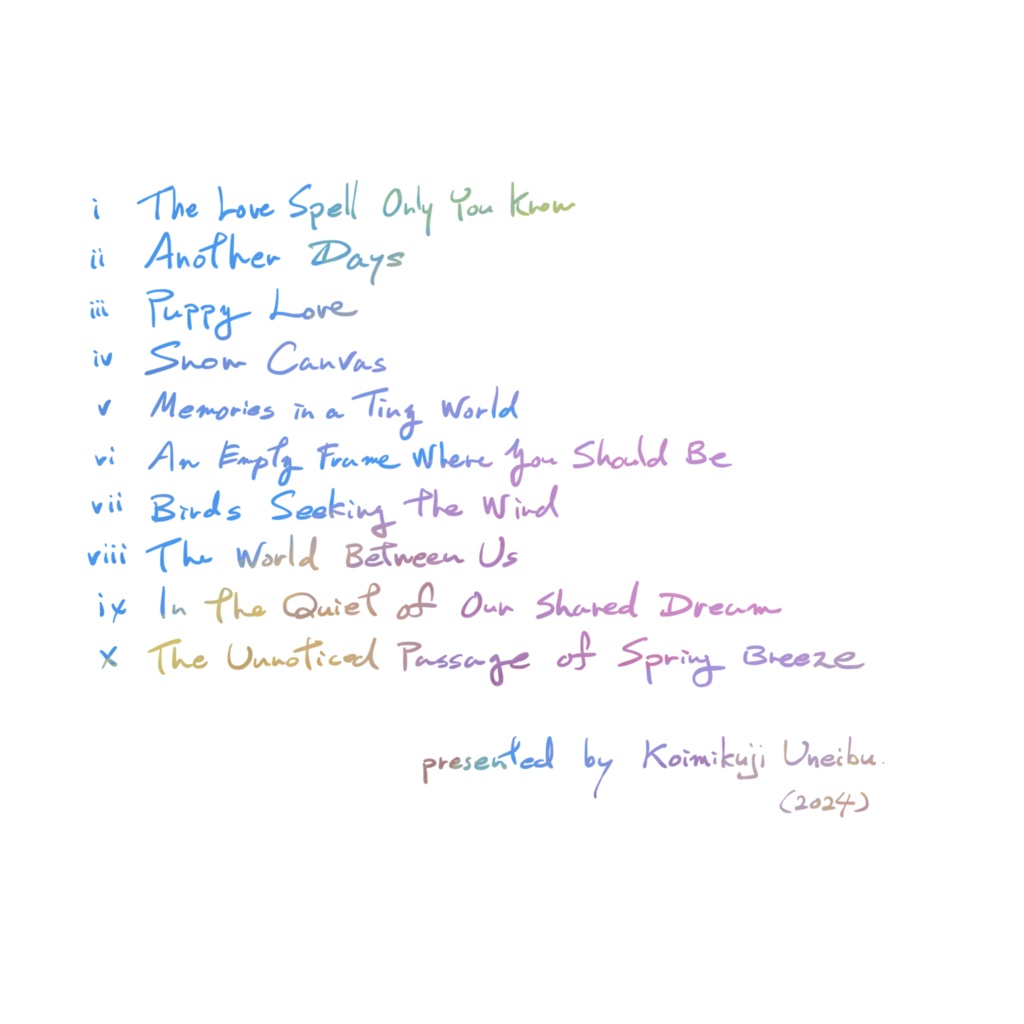 i The Love Spell Only You Know
ii Another Days
iii Puppy Love
iv Snow Canvas
v Memories in a Tiny World
vi An Empty Frame Where You Should Be
vii Birds Seeking the Wind
viii The World Between Us
ix In the Quiet of Our Shared Dream
x The Unnoticed Passage of Spring Breeze
presented by Koimikuji Uneibu.
(2024)